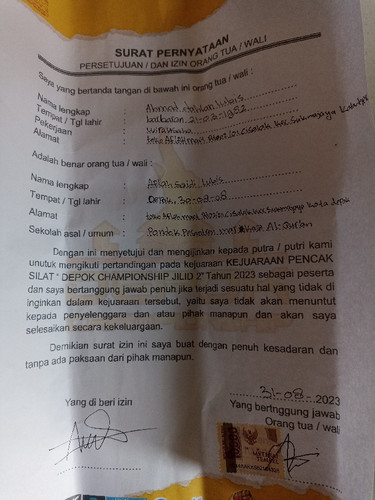 SURAT PERNYATAAN
PERSETUJUAN / DAN IZIN ORANG TUA / WALI
Saya yang bertanda tangan di bawah ini orang tua / wali :
Nama lengkap : Ahmad dahlan lubis
Tempat / Tgl lahir : 21-02-1982
Pekerjaan : wiraswasta
Alamat :
Adalah benar orang tua / wali :
Nama lengkap : Aflah Said lubis
Tempat / Tgl lahir : Depok, 30-08-08
Alamat :
Sekolah asal / umum : Pondok Al-Qur'an
Dengan ini menyetujui dan mengijinkan kepada putra / putri kami
unutuk mengikuti pertandingan pada kejuaraan KEJUARAAN PENCAK
SILAT " DEPOK CHAMPIONSHIP JILID 2" Tahun 2023 sebagai peserta
dan saya bertanggung jawab penuh jika terjadi sesuatu hal yang tidak di
inginkan dalam kejuaraan tersebut, yaitu saya tidak akan menuntut
kepada penyelenggara dan atau pihak manapun dan akan saya
selesaikan secara kekeluargaan.
Demikian surat izin ini saya buat dengan penuh kesadaran dan
tanpa ada paksaan dari pihak manapun.
31-08-2023
Yang di beri izin
Yang bertnggung jawab
Orang tua / wali